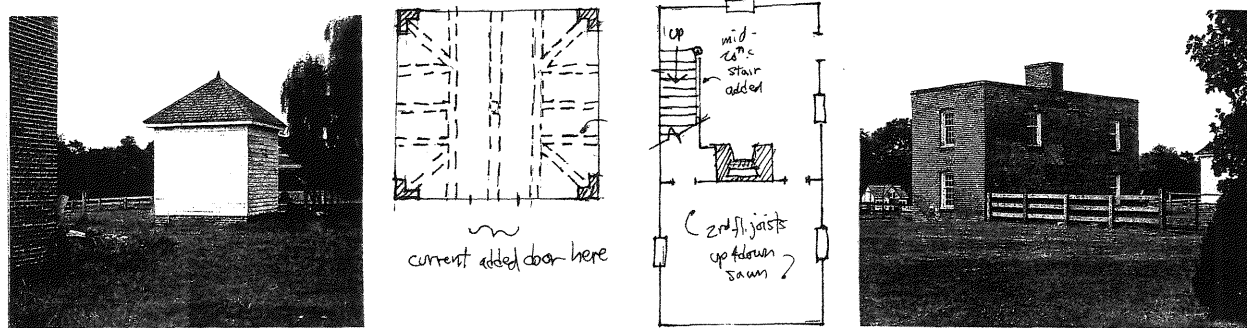 current added door here
up
mid-
20th c.
stair
added
2nd fl. joists
up & down
sawn ?